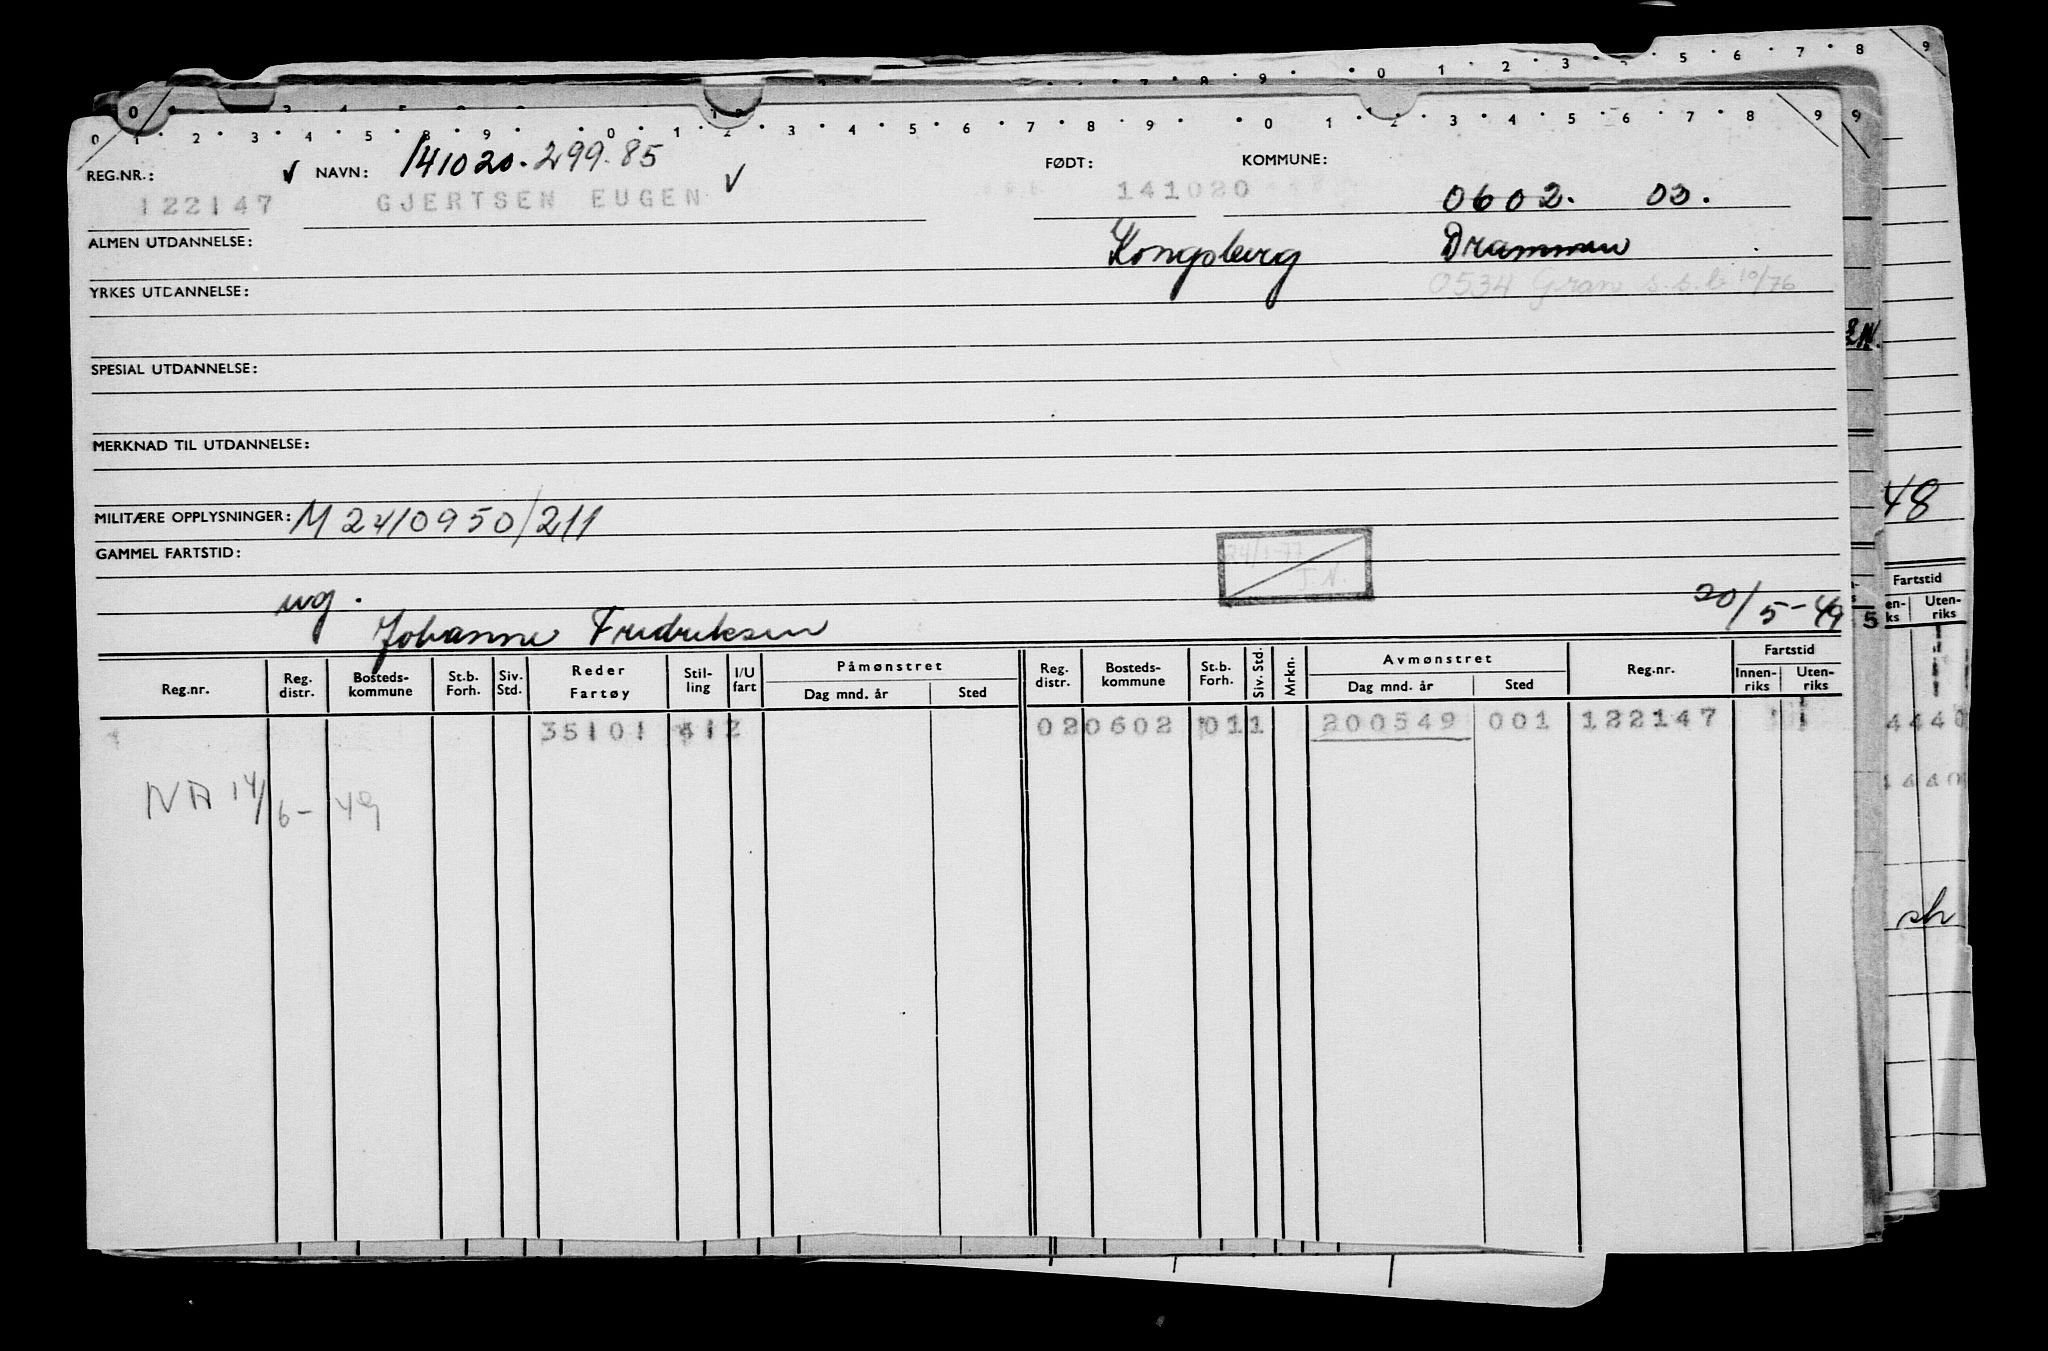 REG.NR.: NAVN: 141020.299.85 FØDT: KOMMUNE:
122147 GJERTSEN EUGEN 141020 0602. 03.
ALMEN UTDANNELSE: Kongsberg Drammen
YRKES UTDANNELSE: 0534 Gran s.s.b 10/76
SPESIAL UTDANNELSE:
MERKNAD TIL UTDANNELSE:
MILITÆRE OPPLYSNINGER: M2410950/211
GAMMEL FARTSTID:
ug. 20/5-49
Johanne Fredriksen
Reg.nr. Reg. distr. Bosteds-kommune St.b. Forh. Siv. Std. Reder Fartøy Stil-ling I/U fart Påmønstret Dag mnd. år Sted Reg. distr. Bosteds-kommune St.b. Forh. Siv. Std. Mrkn. Avmønstret Dag mnd. år Sted Reg.nr. Fartstid Innen-riks Uten-riks
35101 412 020602 011 200549 001 122147
NA 14/6-49
48
Fartstid
Uten-riks
sh